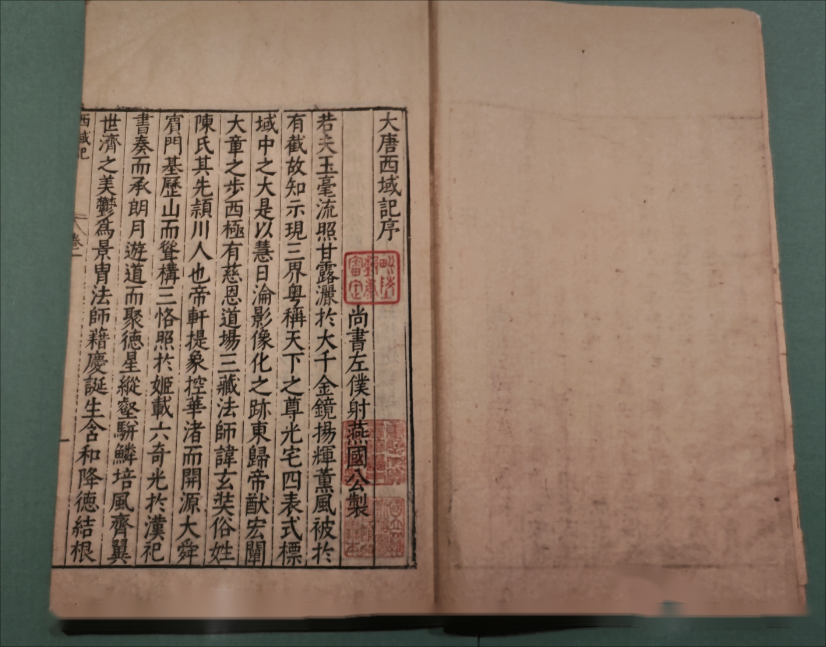 大唐西域記序
尚書左僕射燕國公製
若夫玉毫流照甘露灑於大千金鏡揚輝薰風被於
有截故知示現三界粤稱天下之尊光宅四表式標
域中之大是以慧日淪影像化之跡東歸帝猷宏闡
大章之步西極有慈恩道場三藏法師諱玄奘俗姓
陳氏其先潁川人也帝軒提象控華渚而開源大舜
賓門基歷山而聳構三恪照於姬載六奇光於漢祀
書奏而承朗月遊道而聚德星縱壑駢鱗培風齊翼
世濟之美鬱爲景胄法師籍慶誕生含和降德結根
西域記
卷一